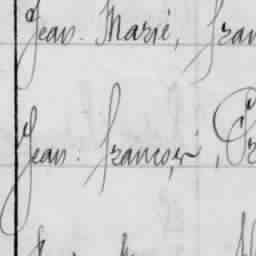 Jean. Marie, Fran
Jean. François, Fr